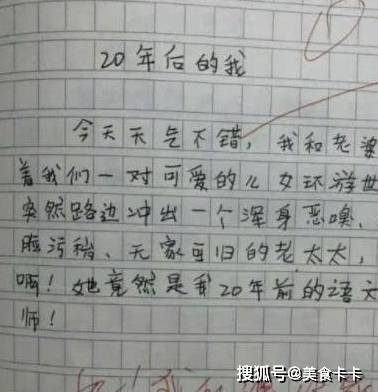 20年后的我
今天天气不错，我和老婆
着我们一对可爱的儿女环游世
突然路边冲出一个浑身恶嗅，
脸污秽、无家可归的老太太，
啊！她竟然是我20年前的语文
师！
搜狐号@美食卡卡